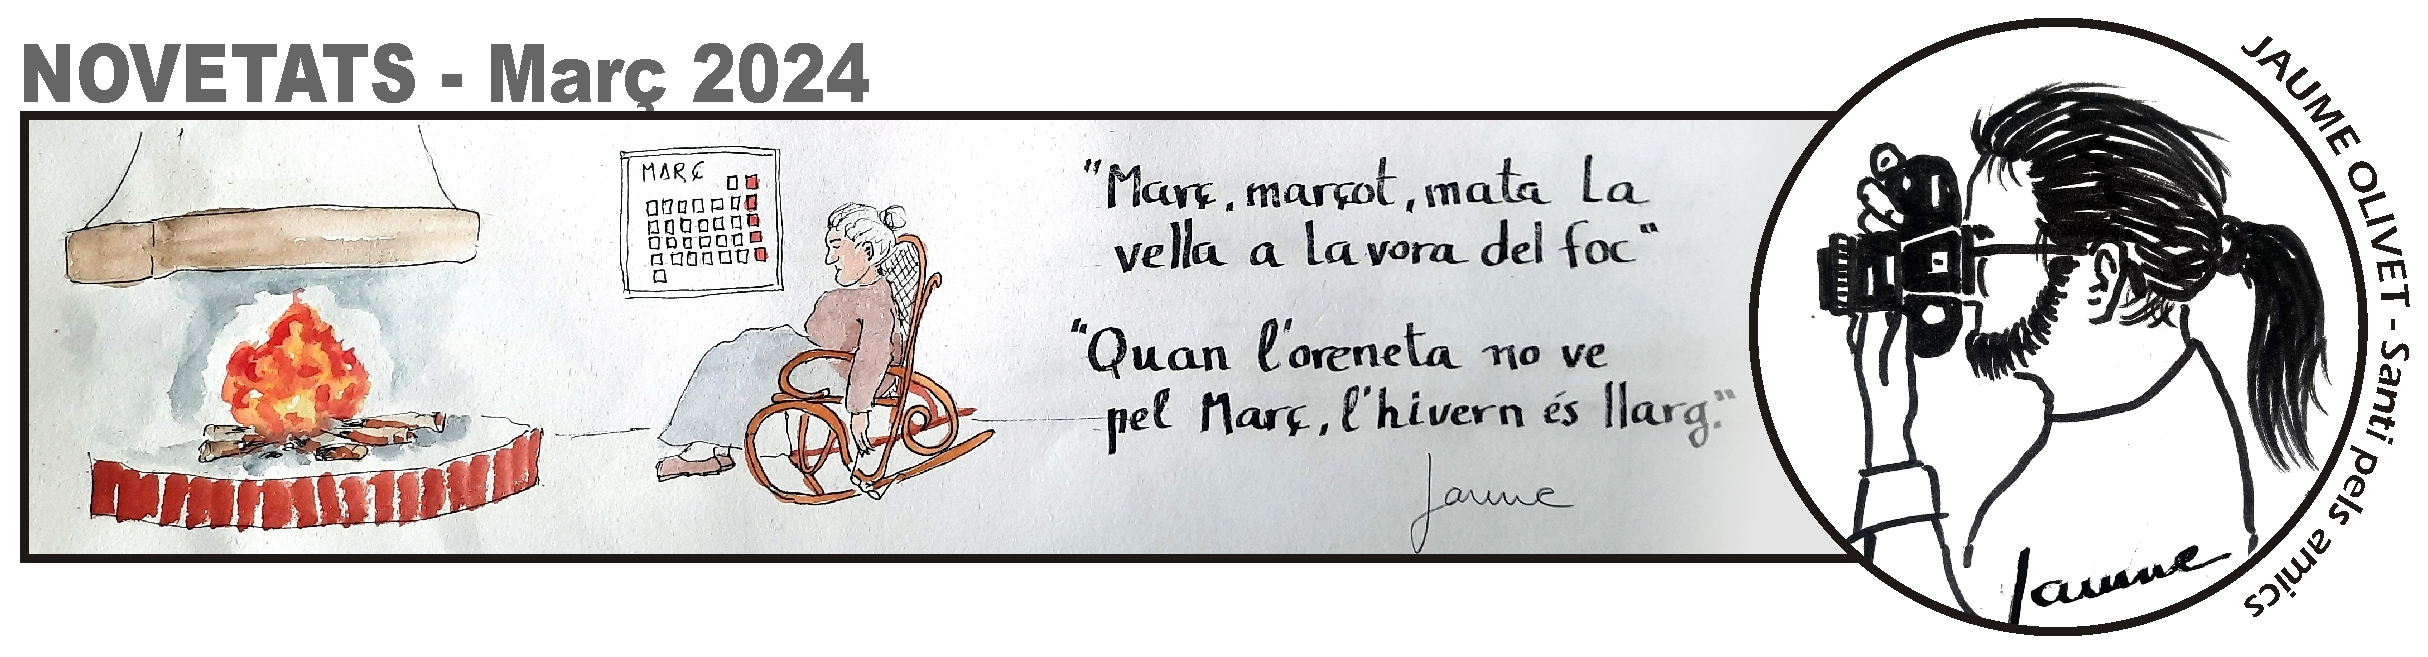 NOVETATS - Març 2024
MARÇ
"Març, marçot, mata la
vella a la vora del foc"
"Quan l'oreneta no ve
pel Març, l'hivern és llarg."
Jaume
JAUME OLIVET - Santi pels amics
Jaume